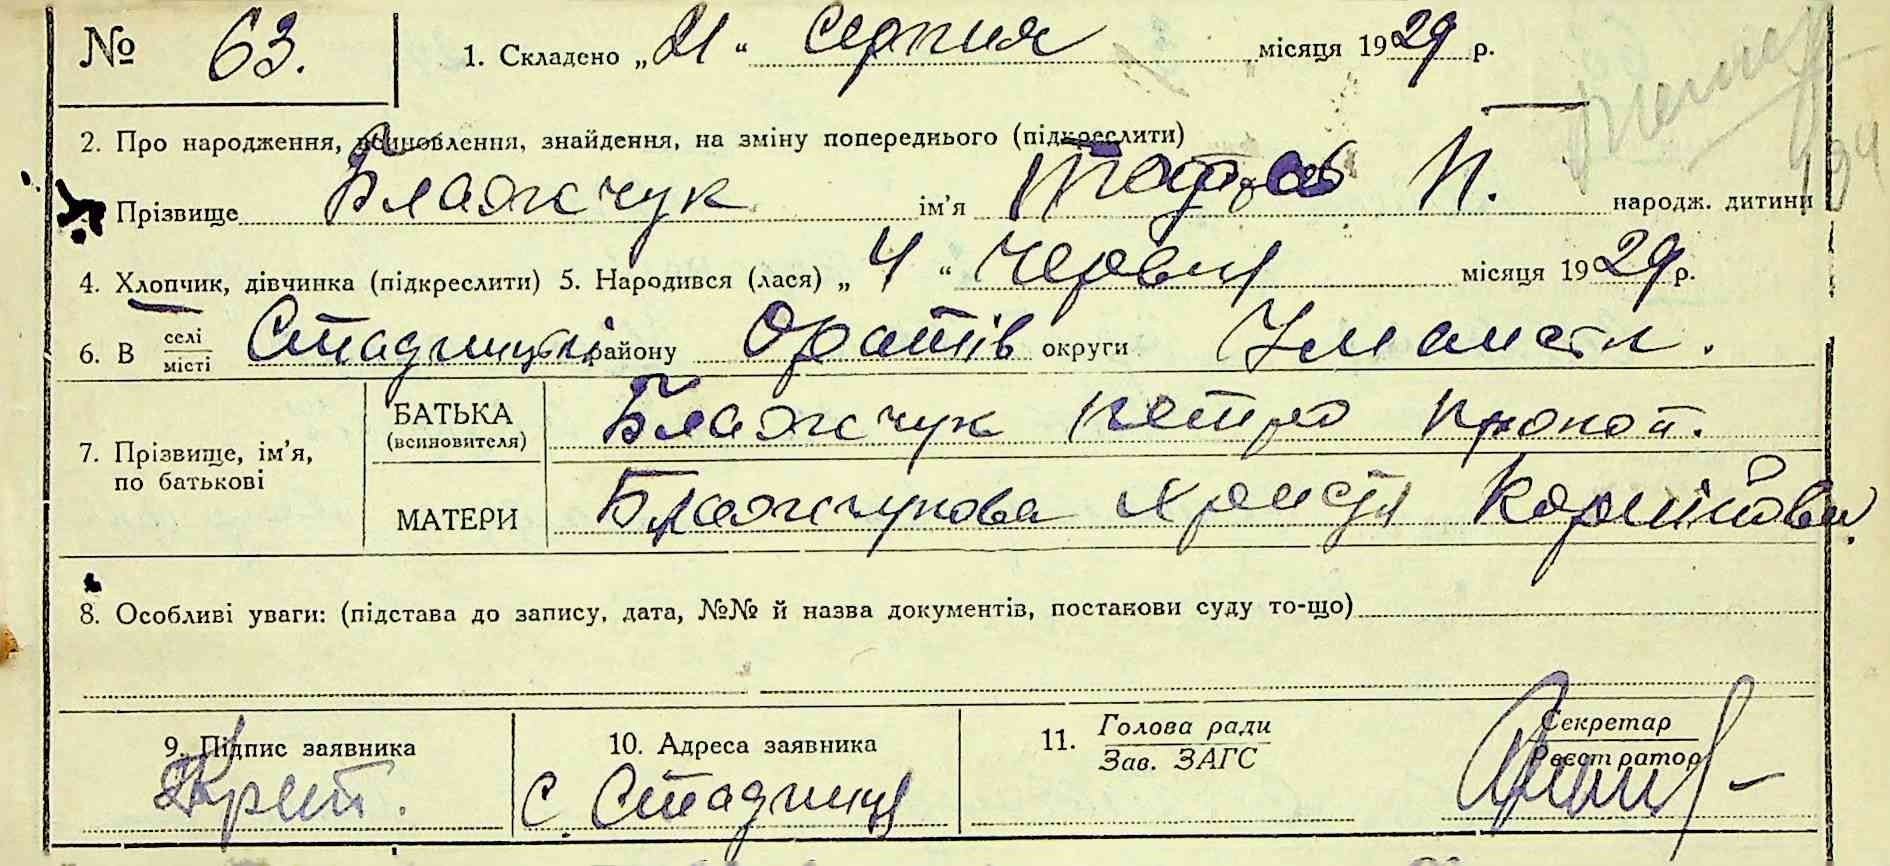 № 63. 1. Складено „21“ серпня місяця 1929 р.
2. Про народження, всиновлення, знайдення, на зміну попереднього (підкреслити)
Прізвище Бляжчук ім'я П. народж. дитини
4. Хлопчик, дівчинка (підкреслити) 5. Народився (лася) „4“ червня місяця 1929 р.
6. В селі Стадниця району Оратів округи
місті
БАТЬКА Бляжчук Петро Прокоп.
(всиновителя)
7. Прізвище, ім'я,
по батькові
МАТЕРИ Бляжчукова Христя Корнійовн.
8. Особливі уваги: (підстава до запису, дата, №№ й назва документів, постанови суду то-що)
9. Підпис заявника 10. Адреса заявника 11. Голова ради Секретар
Зав. ЗАГС Реєстратор
с. Стадниця